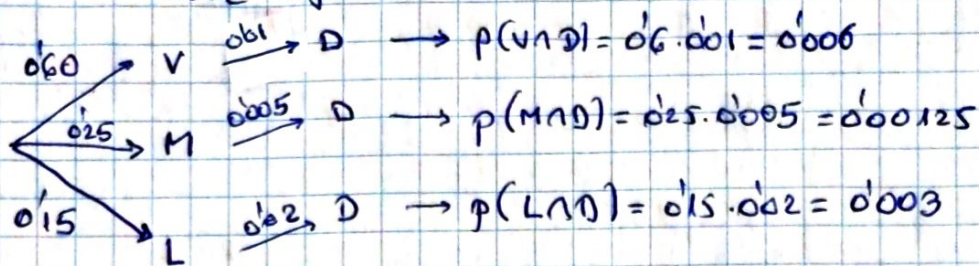 0'60 V 0'01 D → p(V∩D) = 0'6 · 0'01 = 0'006
0'25 M 0'005 D → p(M∩D) = 0'25 · 0'005 = 0'000125
0'15 L 0'02 D → p(L∩D) = 0'15 · 0'02 = 0'003